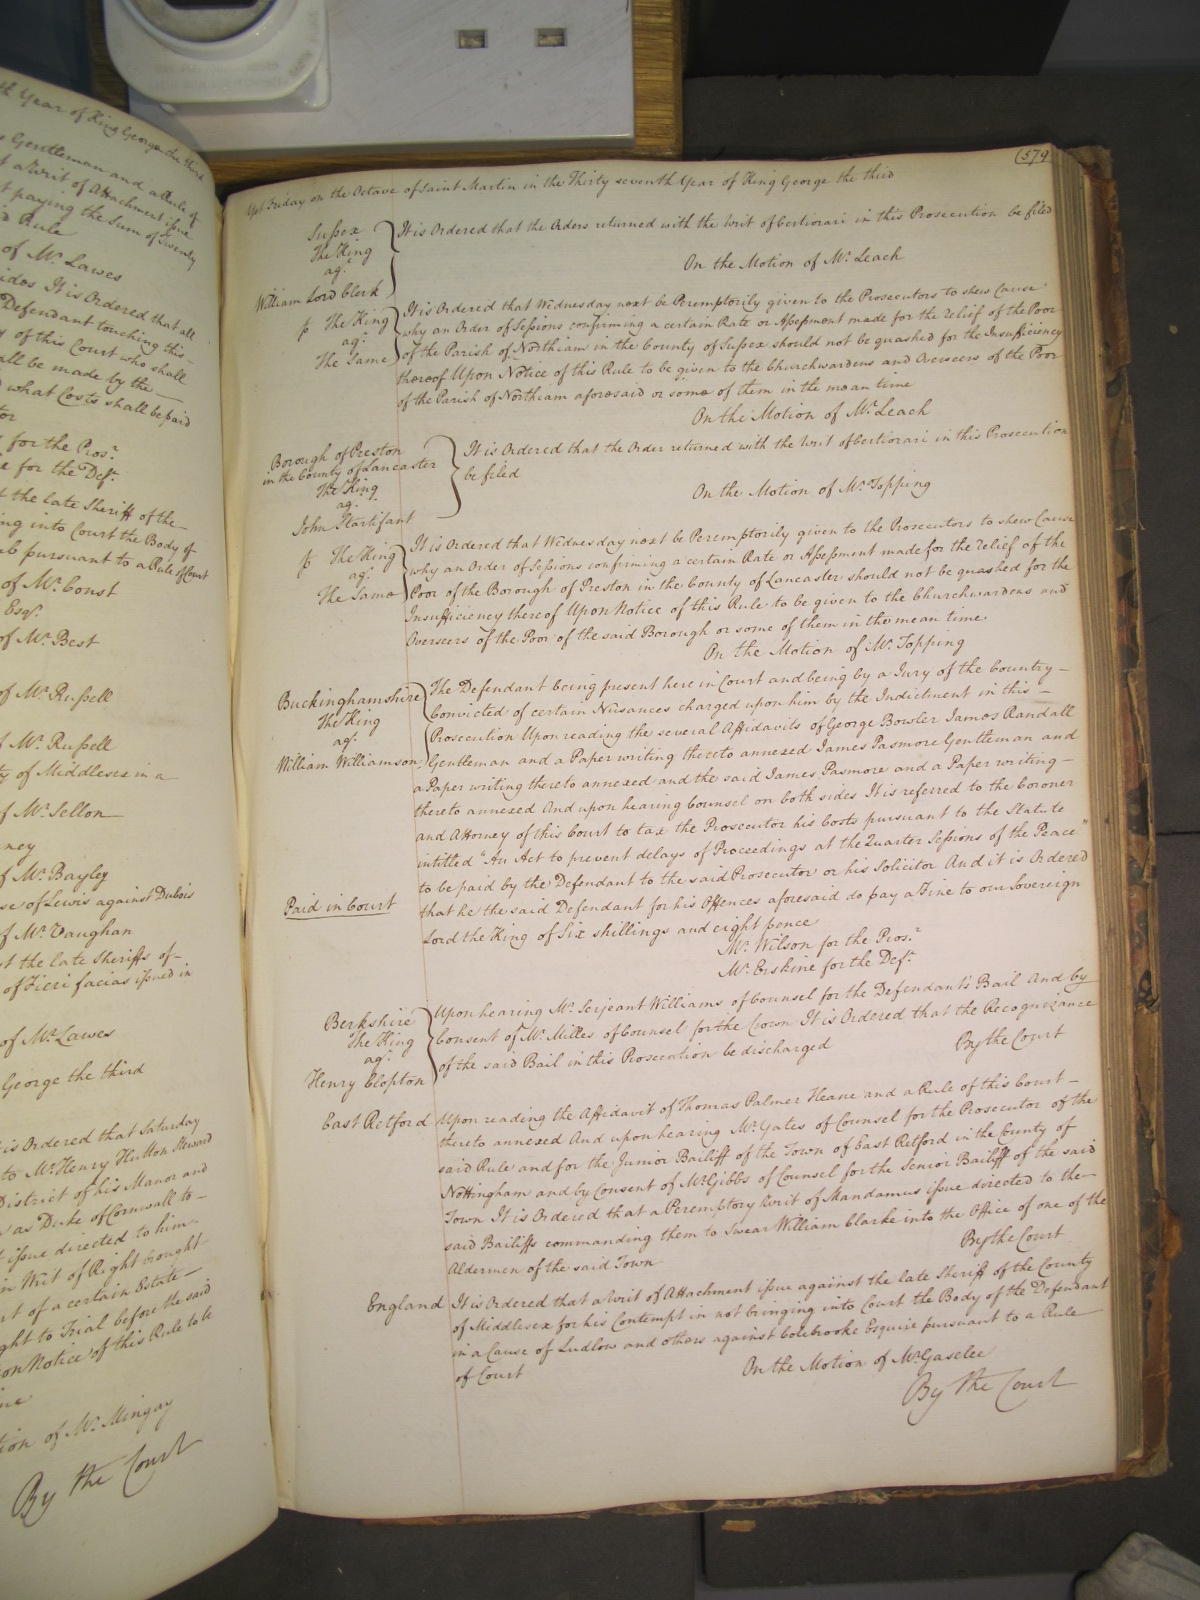 th Year of King George the third
Gentleman and a Rule of
a Writ of Attachment issue
paying the Sum of Twenty
Rule
of Mr. Lawes
sides It is Ordered that all
Defendant touching this
of this Court who shall
all be made by the
what Costs shall be paid
for the Pros.r
for the Def.t
the late Sheriff of the
ing into Court the Body of
pursuant to a Rule of Court
of Mr. Const
Esqr.
of Mr. Best
of Mr. Russell
Mr. Russell
ty of Middlesex in a
of Mr. Sellon
of Mr. Bayley
se of Lewis against Dubois
of Mr. Vaughan
the late Sheriffs of
of Fieri facias issued in
of Mr. Lawes
George the third
is Ordered that Saturday
to Mr. Henry Hutton Steward
District of his Manor and
as Duke of Cornwall to
issue directed to him
in Writ of Right brought
rt of a certain Estate
ght to Trial before the said
on Notice of this Rule to be
tion of Mr. Mingay
By the Court
(579
Yet Friday on the Octave of Saint Martin in the Thirty seventh Year of King George the third
Sussex
The King
ag.t
William Lord Clerk
It is Ordered that the Orders returned with the Writ of Certiorari in this Prosecution be filed
On the Motion of Mr. Leach
The King
ag.t
The Same
It is Ordered that Wednesday next be Peremptorily given to the Prosecutors to shew Cause
why an Order of Sessions confirming a certain Rate or Assessment made for the relief of the Poor
of the Parish of Northiam in the County of Sussex should not be quashed for the Insufficiency
thereof Upon Notice of this Rule to be given to the Churchwardens and Overseers of the Poor
of the Parish of Northiam aforesaid or some of them in the mean time
On the Motion of Mr. Leach
Borough of Preston
in the County of Lancaster
The King
ag.t
John Startifant
It is Ordered that the Order returned with the Writ of Certiorari in this Prosecution
be filed
On the Motion of Mr. Topping
The King
ag.t
The Same
It is Ordered that Wednesday next be Peremptorily given to the Prosecutors to shew Cause
why an Order of Sessions confirming a certain Rate or Assessment made for the relief of the
Poor of the Borough of Preston in the County of Lancaster should not be quashed for the
Insufficiency thereof Upon Notice of this Rule to be given to the Churchwardens and
Overseers of the Poor of the said Borough or some of them in the mean time
On the Motion of Mr. Topping
Buckinghamshire
The King
ag.t
William Williamson
The Defendant being present here in Court and being by a Jury of the Country
Convicted of certain Nusances charged upon him by the Indictment in this
Prosecution Upon reading the several Affidavits of George Bowler James Randall
Gentleman and a Paper writing thereto annexed James Pasmore Gentleman and
a Paper writing thereto annexed and the said James Pasmore and a Paper writing
thereto annexed And upon hearing Counsel on both sides It is referred to the Coroner
and Attorney of this Court to tax the Prosecutor his Costs pursuant to the Statute
intitled "An Act to prevent delays of Proceedings at the Quarter Sessions of the Peace"
to be paid by the Defendant to the said Prosecutor or his Solicitor And it is Ordered
Paid in Court
that he the said Defendant for his Offences aforesaid do pay a Fine to our Sovereign
Lord the King of Six shillings and eight pence
Mr. Wilson for the Pros.r
Mr. Erskine for the Def.t
Berkshire
The King
ag.t
Henry Clopton
Upon hearing Mr. Serjeant Williams of Counsel for the Defendant's Bail And by
Consent of Mr. Milles of Counsel for the Crown It is Ordered that the Recognizance
of the said Bail in this Prosecution be discharged
By the Court
East Retford
Upon reading the Affidavit of Thomas Palmer Heane and a Rule of this Court
thereto annexed And upon hearing Mr. Yates of Counsel for the Prosecutor of the
said Rule and for the Junior Bailiff of the Town of East Retford in the County of
Nottingham and by Consent of Mr. Gibbs of Counsel for the Senior Bailiff of the said
Town It is Ordered that a Peremptory Writ of Mandamus issue directed to the
said Bailiffs commanding them to Swear William Clarke into the Office of one of the
Aldermen of the said Town
By the Court
England
It is Ordered that a Writ of Attachment issue against the late Sheriff of the County
of Middlesex for his Contempt in not bringing into Court the Body of the Defendant
in a Cause of Ludlow and others against Colebrooke Esquire pursuant to a Rule
of Court
On the Motion of Mr. Gaselee
By the Court